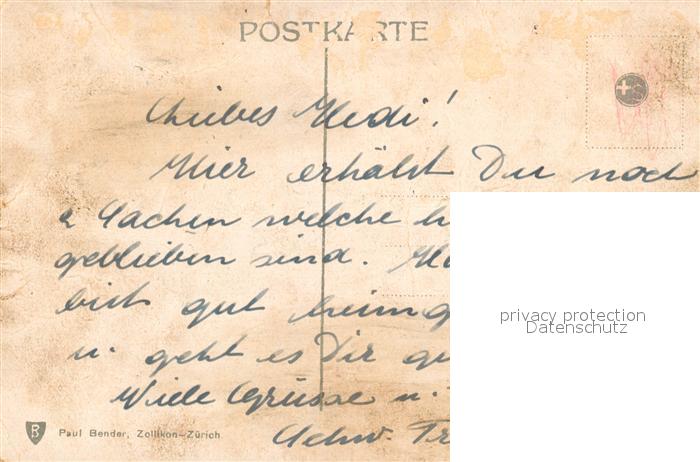 POSTKARTE
Liebes Hedi!
Hier erhälst Du noch
2 Sachen welche h
geblieben sind.
bist gut heimg
u. geht es Dir gu
Viele Grüsse u.
Schw. Tr
privacy protection
Datenschutz
B Paul Bender, Zollikon-Zürich